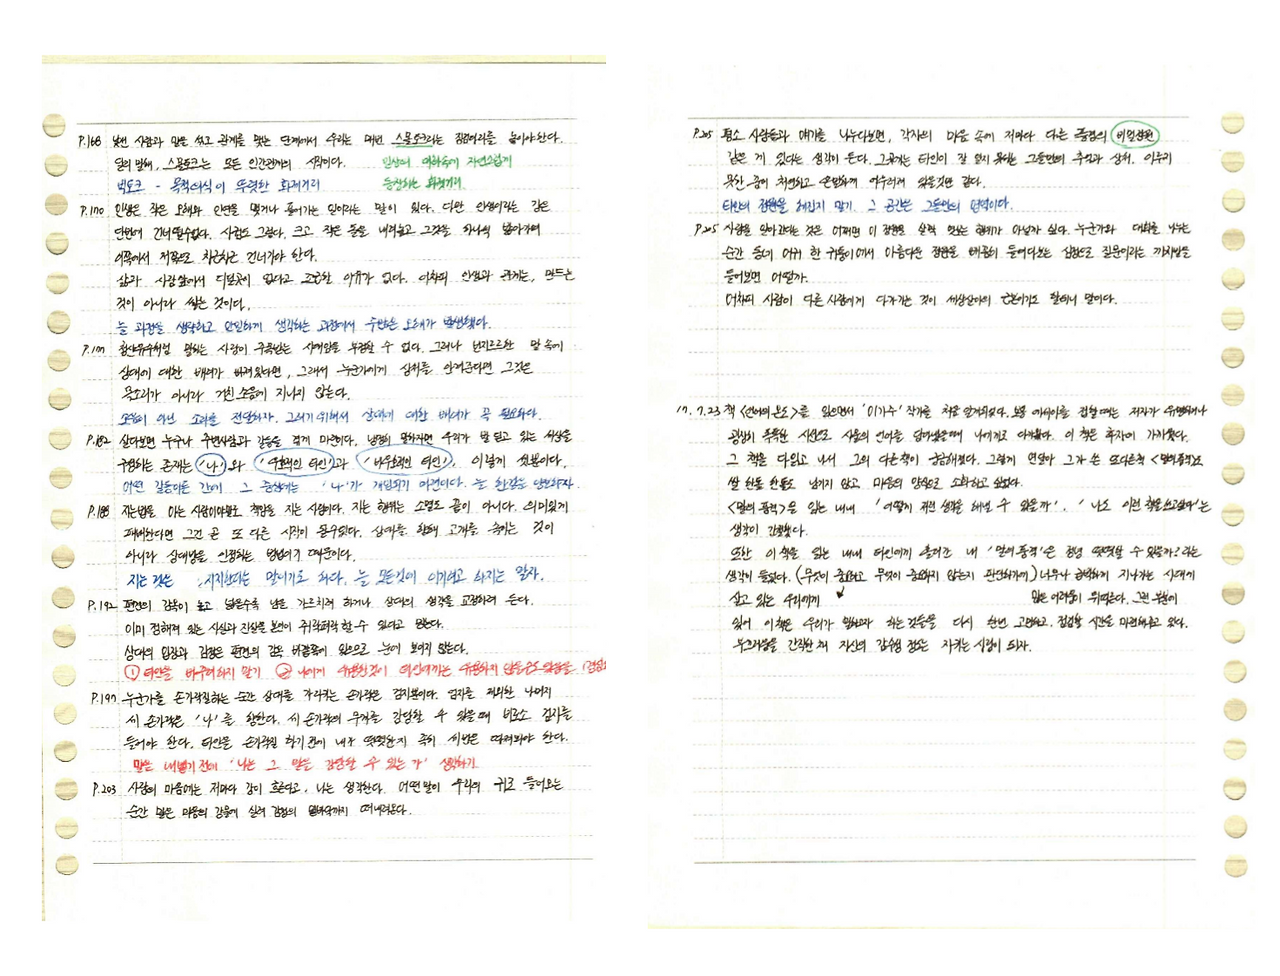 P.168 낯선 사람과 말을 섞고 관계를 맺는 단계에서 우리는 매번 스몰토크라는 징검다리를 놓아야 한다.
달리 말해, 스몰토크는 모든 인간관계의 시작이다. 일상의 대화속에 자연스럽게
빅토크 - 목적의식이 뚜렷한 화젯거리 등장하는 화젯거리
P.170 인생은 작은 오해와 인연을 맺거나 풀어가는 일이라는 말이 있다. 다만 인생이라는 강은
단번에 건너뛸 수 없다. 사람도 그렇다. 크고 작은 돌을 내려놓고 그것을 하나씩 밟아가며
이쪽에서 저쪽으로 차근차근 건너가야 한다.
삶과 사람 앞에서 디딜 곳이 없다고 조급할 이유가 없다. 어차피 인생과 관계는, 만드는
것이 아니라 쌓는 것이다.
늘 과정을 생략하고 안일하게 생각하는 과정에서 수많은 오해가 발생했다.
청산유수처럼 말하는 사람이 주목받는 시대임을 부정할 수 없다. 그러나 번지르르한 말 속에
상대에 대한 배려가 빠져있다면, 그래서 누군가에게 상처를 안겨준다면 그것은
목소리가 아니라 거친 소음에 지나지 않는다.
소음이 아닌 소리를 전달하자. 그러기 위해서 상대에 대한 배려가 꼭 필요하다.
P.182 살다보면 누구나 주변사람과 갈등을 겪게 마련이다. 냉정히 말하자면 우리가 발 딛고 있는 세상을
구성하는 존재는 '나'와 '우호적인 타인'과 '비우호적인 타인', 이렇게 셋뿐이다.
어떤 갈등이든 간에 그 중심에는 '나'가 개입되기 마련이다. 늘
P.185 지는법을 아는 사람이야말로 책임을 지는 사람이다. 지는 행위는 소멸도 끝이 아니다. 의미있게
패배한다면 그건 곧 또 다른 시작이 될 수 있다. 상대를 향해 고개를 숙이는 것이
아니라 상대방을 인정하는 방법이기 때문이다.
지는 것은 , 지지한다는 말이기도 하다. 늘 모든것이 이기려고 하지는 말자.
P.192 편견의 감옥이 높고 넓을수록 남을 가르치려 하거나 상대의 생각을 교정하려 든다.
이미 정해져 있는 사실과 진실을 본인이 쥐락펴락할 수 있다고 믿는다.
상대의 입장과 감정은 편견의 감옥 바깥쪽에 있으므로 눈에 보이지 않는다.
① 타인을 바꾸려하지 말기 ② 나에게 유용한것이 타인에게는 유용하지 않을수도 있음을
P.197 누군가를 손가락질하는 순간 상대를 가리키는 손가락은 검지뿐이다. 엄지를 제외한 나머지
세 손가락은 '나'를 향한다. 세 손가락의 무게를 감당할 수 있을때 비로소 검지를
들어야 한다. 타인을 손가락질 하기 전에 내가 떳떳한지 족히 세번은 따져봐야 한다.
말을 내뱉기 전에 '나는 그 말을 감당할 수 있는가' 생각하기.
P.203 사람의 마음에는 저마다 강이 흐른다고, 나는 생각한다. 어떤 말이 우리의 귀로 들어오는
순간 말은 마음의 강물에 실려 감정의 밑바닥까지 떠내려온다.
P.205 평소 사람들과 얘기를 나누다보면, 각자의 마음 속에 저마다 다른 풍경의 비밀정원
같은 게 있다는 생각이 든다. 그곳에는 타인이 잘 알지 못하는 그들만의 추억과 상처, 이루지
못한 꿈이 처연하고 은밀하게 어우러져 있을 것만 같다.
타인의 정원을 해집지 말기. 그 공간은 그들만의 영역이다.
P.205 사람을 알아간다는 것은 어쩌면 이 정원을 살짝 엿보는 행위가 아닐까 싶다. 누군가와 대화를 나누는
순간 동네 어귀 한 귀퉁이에서 아름다운 정원을 빼꼼히 들여다보는 심정으로 질문이라는 까치발을
들어보면 어떨까.
어차피 사람이 다른 사람에게 다가가는 것이 세상살이의 근본이기도 할테니 말이다.
17. 7. 23 책 <언어의 온도>를 읽으면서 '이기주' 작가를 처음 알게되었다. 보통 에세이를 접할때는 저자가 유명하거나
굉장히 독특한 시선으로 사물의 언어를 담아냈을때 나에게로 다가왔다. 이 책은 후자에 가까웠다.
그 책을 다 읽고 나서 그의 다른책이 궁금해졌다. 그렇게 연달아 그가 쓴 또다른책 <말의 품격>도
쌀 한톨 한톨도 남기지 않고 마음의 양식으로 소화하고 싶었다.
<말의 품격>을 읽는 내내 '어떻게 저런 생각을 해낼 수 있을까', '나도 이런 책을 쓰고싶다'는
생각이 간절했다.
또한 이 책을 읽는 내내 타인에게 흘러간 내 '말의 품격'은 정녕 떳떳할 수 있을까?라는
생각이 들었다. (무엇이 중요하고 무엇이 중요하지 않는지 판단하기에) 너무나 급박하게 지나가는 시대에
살고 있는 우리에게 많은 어려움이 뒤따른다. 그런 부분에
있어 이 책은 우리가 말하고자 하는 것들을 다시 한번 고민하고, 점검할 시간을 마련해주고 있다.
부끄러움을 간직한 채 자신의 감수성 정도는 지키는 사람이 되자.